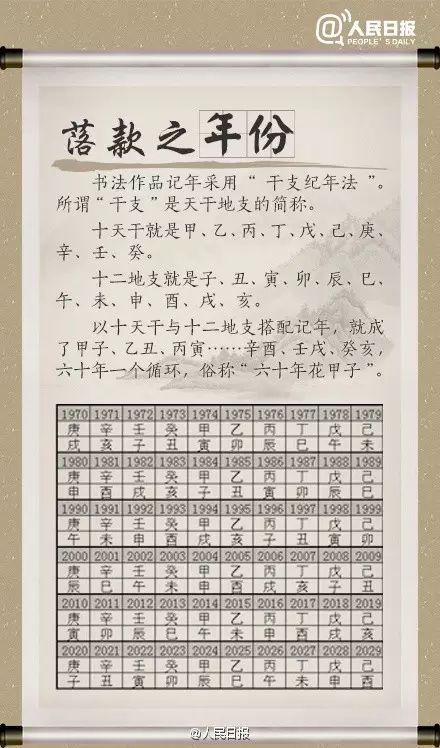 @人民日报
PEOPLE'S DAILY
落款之年份
书法作品记年采用“干支纪年法”。
所谓“干支”是天干地支的简称。
十天干就是甲、乙、丙、丁、戊、己、庚、
辛、壬、癸。
十二地支就是子、丑、寅、卯、辰、巳、
午、未、申、酉、戌、亥。
以十天干与十二地支搭配记年，就成
了甲子、乙丑、丙寅……辛酉、壬戌、癸亥，
六十年一个循环，俗称“六十年花甲子”。
1970 1971 1972 1973 1974 1975 1976 1977 1978 1979
庚 辛 壬 癸 甲 乙 丙 丁 戊 己
戌 亥 子 丑 寅 卯 辰 巳 午 未
1980 1981 1982 1983 1984 1985 1986 1987 1988 1989
庚 辛 壬 癸 甲 乙 丙 丁 戊 己
申 酉 戌 亥 子 丑 寅 卯 辰 巳
1990 1991 1992 1993 1994 1995 1996 1997 1998 1999
庚 辛 壬 癸 甲 乙 丙 丁 戊 己
午 未 申 酉 戌 亥 子 丑 寅 卯
2000 2001 2002 2003 2004 2005 2006 2007 2008 2009
庚 辛 壬 癸 甲 乙 丙 丁 戊 己
辰 巳 午 未 申 酉 戌 亥 子 丑
2010 2011 2012 2013 2014 2015 2016 2017 2018 2019
庚 辛 壬 癸 甲 乙 丙 丁 戊 己
寅 卯 辰 巳 午 未 申 酉 戌 亥
2020 2021 2022 2023 2024 2025 2026 2027 2028 2029
庚 辛 壬 癸 甲 乙 丙 丁 戊 己
子 丑 寅 卯 辰 巳 午 未 申 酉
@人民日报